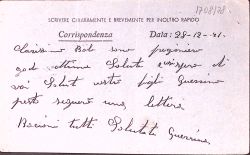 1708/78.
SCRIVERE CHIARAMENTE E BREVEMENTE PER INOLTRO RAPIDO
Corrispondenza Data: 28-12-41.
Carissimo sono prigioniero
godo ottima Salute di
voi Saluti vostro figlio Guerrino
presto seguirà una lettera
Bacioni tutti Salutato Guerrino